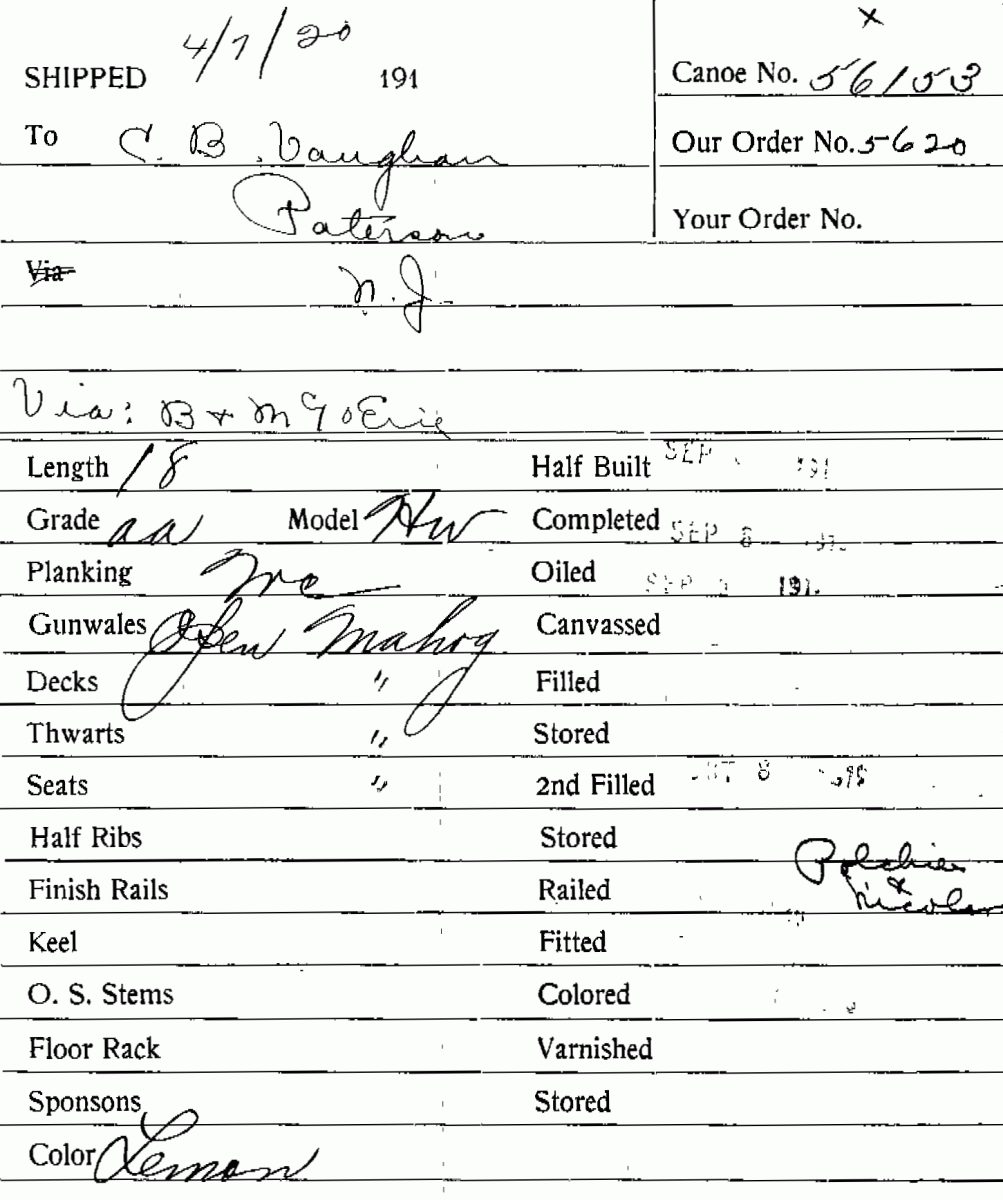 ×
SHIPPED 4/7/20 191
Canoe No. 56153
To C. B. Vaughan
Our Order No. 5620
Paterson
Your Order No.
Via
N.J.
Via: B + M Erie
Length 18 Half Built SEP 191
Grade AA Model HW Completed SEP 8 191
Planking Oiled SEP 191
Gunwales Open Mahog Canvassed
Decks " Filled
Thwarts " Stored
Seats " 2nd Filled 8
Half Ribs Stored
Finish Rails Railed Polchies & Nicolar
Keel Fitted
O. S. Stems Colored
Floor Rack Varnished
Sponsons Stored
Color Lemon